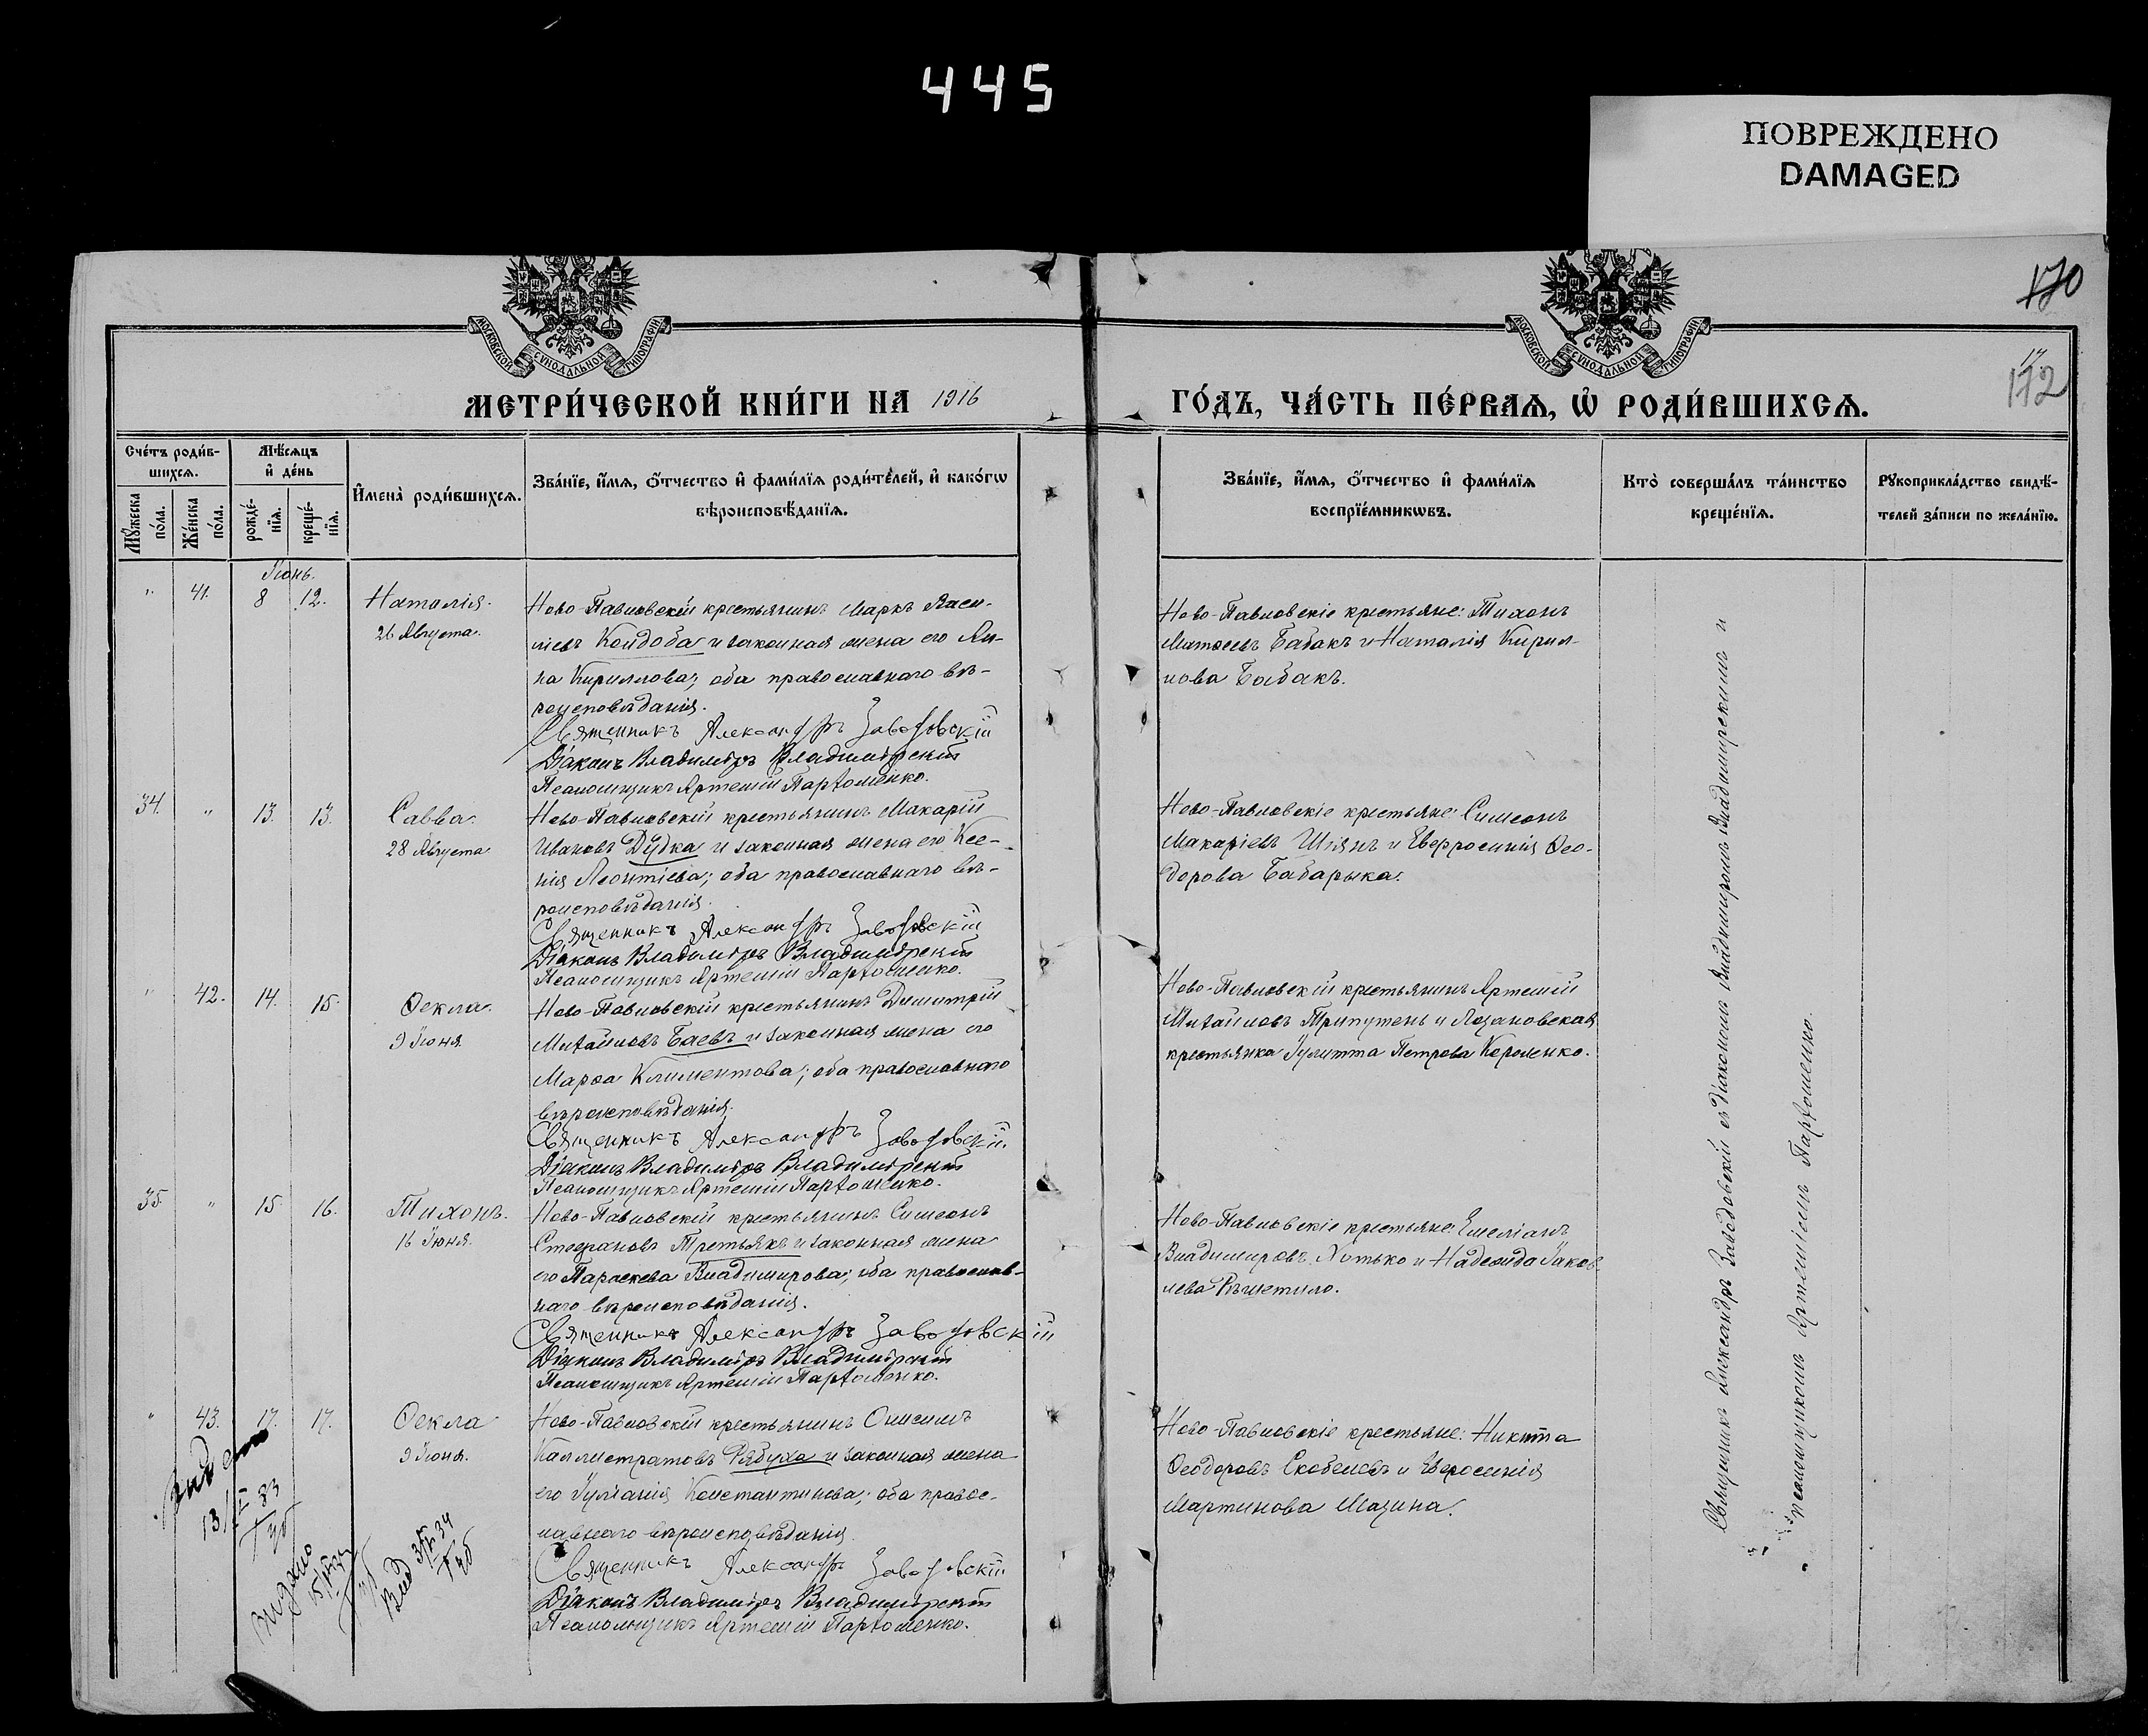 445
ПОВРЕЖДЕНО
DAMAGED
170
172
МОСКОВСКОЙ СУНОДАЛЬНОЙ ТИПОГРАФІИ
МОСКОВСКОЙ СУНОДАЛЬНОЙ ТИПОГРАФІИ
МЕТРИ́ЧЕСКОЙ КНИ́ГИ НА 1916
ГО́ДЪ, ЧА́СТЬ ПЕ́РВАѦ, Ѡ РОДИ́ВШИХСѦ.
Сче́тъ роди́вшихсѧ.
Мꙋ́жеска по́ла.
Же́нска по́ла.
Мѣ́сѧцъ и҆ де́нь
рожде́-нїѧ.
креще́-нїѧ.
И҆мена̀ роди́вшихсѧ.
Зва́нїе, и҆́мѧ, ѻ҆́тчество и҆ фами́лїѧ роди́телей, и҆ како́гѡ
вѣроисповѣ́данїѧ.
Зва́нїе, и҆́мѧ, ѻ҆́тчество и҆ фами́лїѧ
воспрїе́мникѡвъ.
Кто̀ соверша́лъ та́инство
креще́нїѧ.
Рꙋкоприкла́дство свидѣ́-
телей за́писи по жела́нїю.
Іюнь.
" 41. 8 12. Наталія.
26 Августа.
Ново-Павловскій крестьянинъ Маркъ Васи-
льевъ Койдоба и законная жена его Ан-
на Кириллова; оба православного вѣ-
роисповѣданія.
Священникъ Александръ Заводовскій
Діаконъ Владиміръ Владимірскій
Псаломщикъ Артемій Пархоменко.
Ново-Павловскіе крестьяне: Тихонъ
Матѳеевъ Бабакъ и Наталія Кирил-
лова Бабакъ.
34. " 13. 13. Савва.
28 Августа
Ново-Павловскій крестьянинъ Макарій
Ивановъ Дудка и законная жена его Ксе-
нія Леонтіева; оба православнаго вѣ-
роисповѣданія.
Священникъ Александръ Заводовскій
Діаконъ Владиміръ Владимірскій
Псаломщикъ Артемій Пархоменко.
Ново-Павловскіе крестьяне: Симеонъ
Макаріевъ Шіянъ и Евфросинія Ѳео-
дорова Бабарыка.
" 42. 14. 15. Ѳекла.
9 Іюня.
Ново-Павловскій крестьянинъ Димитрій
Михайловъ Баевъ и законная жена его
Марѳа Климентова; оба православнаго
вѣроисповѣданія.
Священникъ Александръ Заводовскій.
Діаконъ Владиміръ Владимірскій
Псаломщикъ Артемій Пархоменко.
Ново-Павловскій крестьянинъ Артемій
Михайловъ Трипутень и Лозановская
крестьянка Іулитта Петрова Короленко.
35. " 15. 16. Тихонъ.
16 Іюня.
Ново-Павловскій крестьянинъ Симеонъ
Стефановъ Третьякъ и законная жена
его Параскева Владимирова; оба православ-
наго вѣроисповѣданія.
Священникъ Александръ Заводовскій
Діаконъ Владиміръ Владимірскій
Псаломщикъ Артемій Пархоменко.
Ново-Павловскіе крестьяне: Емеліанъ
Владимировъ Хотько и Надежда Іаков-
лева Рѣшетило.
" 43. 17. 17. Ѳекла
9 Іюня.
Ново-Павловскій крестьянинъ Онисимъ
Каллистратовъ Рябуха и законная жена
его Іуліанія Константинова; оба правос-
лавнаго вѣроисповѣданія.
Священникъ Александръ Заводовскій
Діаконъ Владиміръ Владимірскій
Псаломщикъ Артемій Пархоменко.
Ново-Павловскіе крестьяне: Никита
Ѳеодоровъ Скобелевъ и Евфросинія
Мартинова Мазина.
Священникъ Александръ Заводовскій съ діакономъ Владимиромъ Владимирскимъ и
псаломщикомъ Артеміемъ Пархоменко.